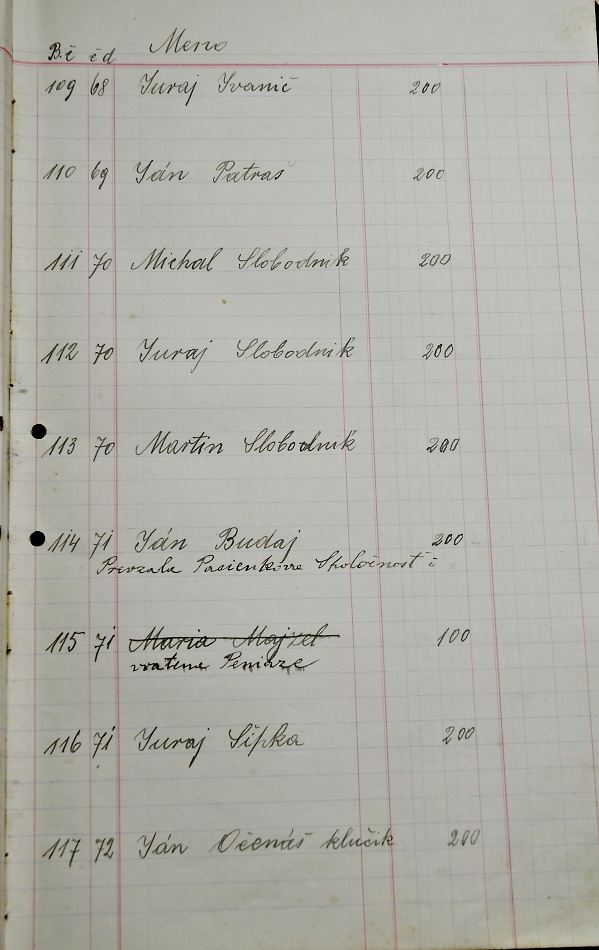 B.č č d Meno
109 68 Juraj Ivanič 200
110 69 Ján Patraš 200
111 70 Michal Slobodník 200
112 70 Juraj Slobodník 200
113 70 Martin Slobodník 200
114 71 Ján Budaj 200
Prevzala Pasienková Spoločnosť
115 71 Maria Majzel 100
vratene Peniaze
116 71 Juraj Šipka 200
117 72 Ján Očenáš klučik 200